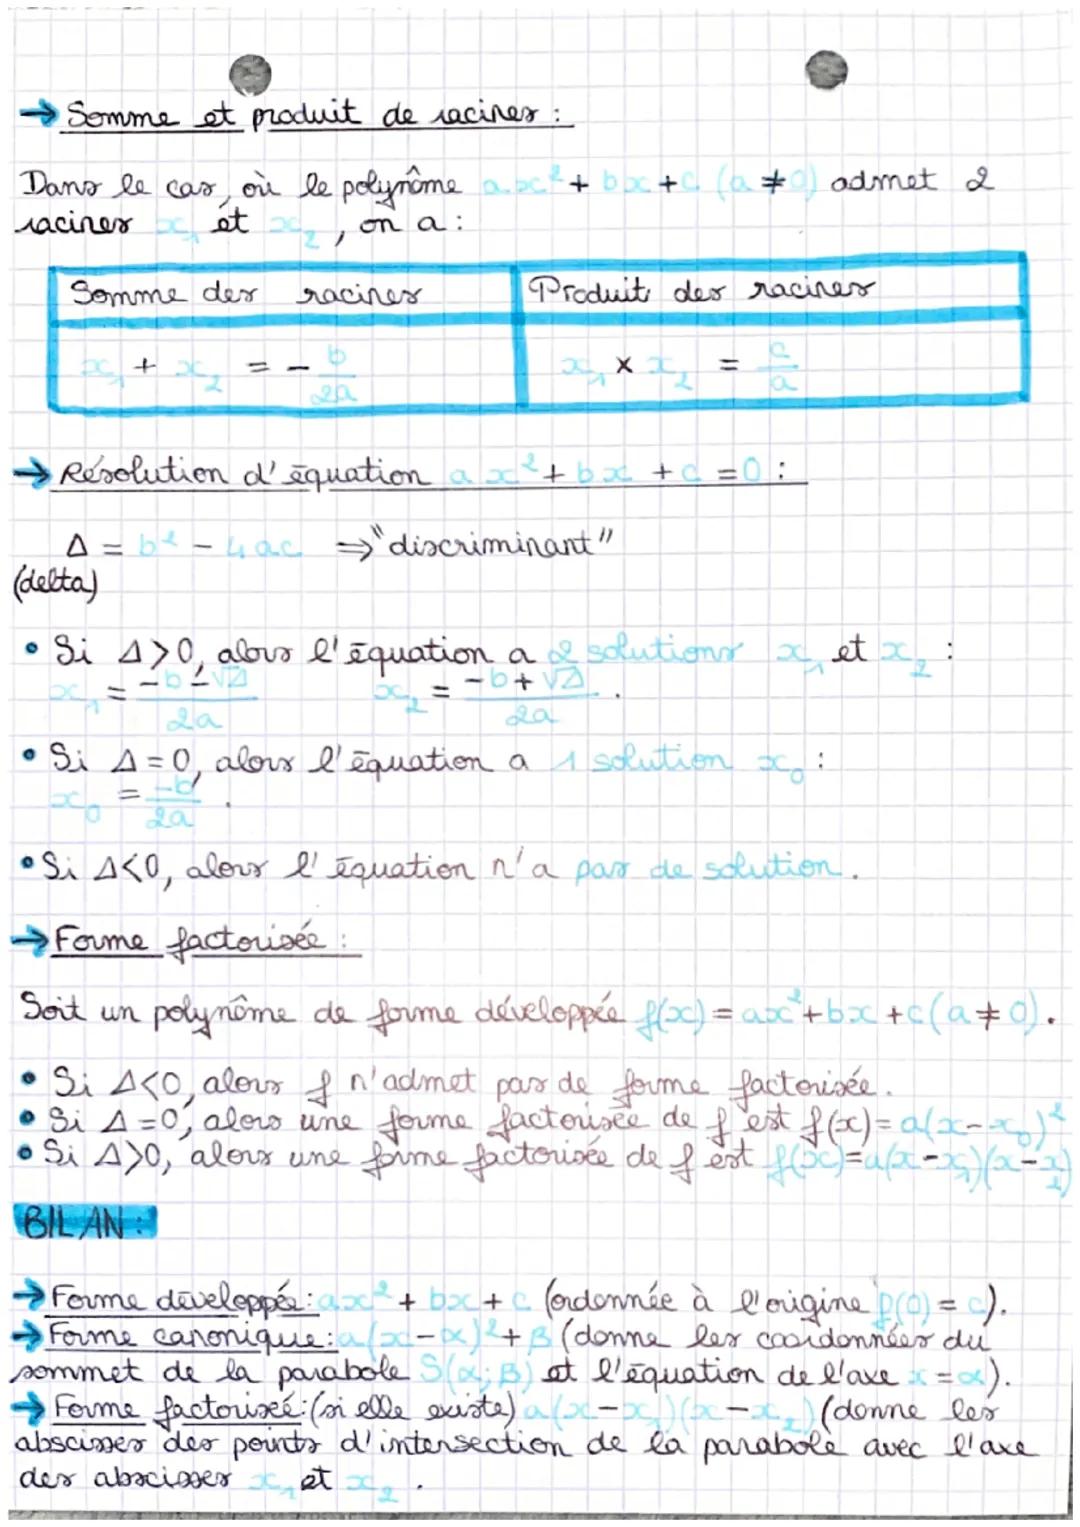 → Somme et produit de racines :
Dans le cas, où le polynôme ax² + bx + c (a ≠ 0) admet 2
racines x₁ et x₂, on a :
Somme des racines
Produit des racines
x₁ + x₂ = - b/2a
x₁ × x₂ = c/a
→ Résolution d'équation ax² + bx + c = 0 :
Δ = b² - 4ac ⇒ "discriminant"
(delta)
• Si Δ>0, alors l'équation a 2 solutions x₁ et x₂ :
x₁ = (-b-√Δ)/2a x₂ = (-b+√Δ)/2a .
• Si Δ=0, alors l'équation a 1 solution x₀ :
x₀ = -b/2a .
• Si Δ<0, alors l'équation n'a pas de solution.
→ Forme factorisée :
Soit un polynôme de forme développée f(x) = ax²+bx+c (a ≠ 0).
• Si Δ<0, alors f n'admet pas de forme factorisée.
• Si Δ=0, alors une forme factorisée de f est f(x)= a(x-x₀)²
• Si Δ>0, alors une forme factorisée de f est f(x)=a(x-x₁)(x-x₂)
BILAN :
→ Forme développée : ax² + bx + c (ordonnée à l'origine f(0) = c).
→ Forme canonique : a(x-α)² + β (donne les coordonnées du
sommet de la parabole S(α; β) et l'équation de l'axe x = α).
→ Forme factorisée : (si elle existe) a(x-x₁)(x-x₂) (donne les
abscisses des points d'intersection de la parabole avec l'axe
des abscisses x₁ et x₂ .